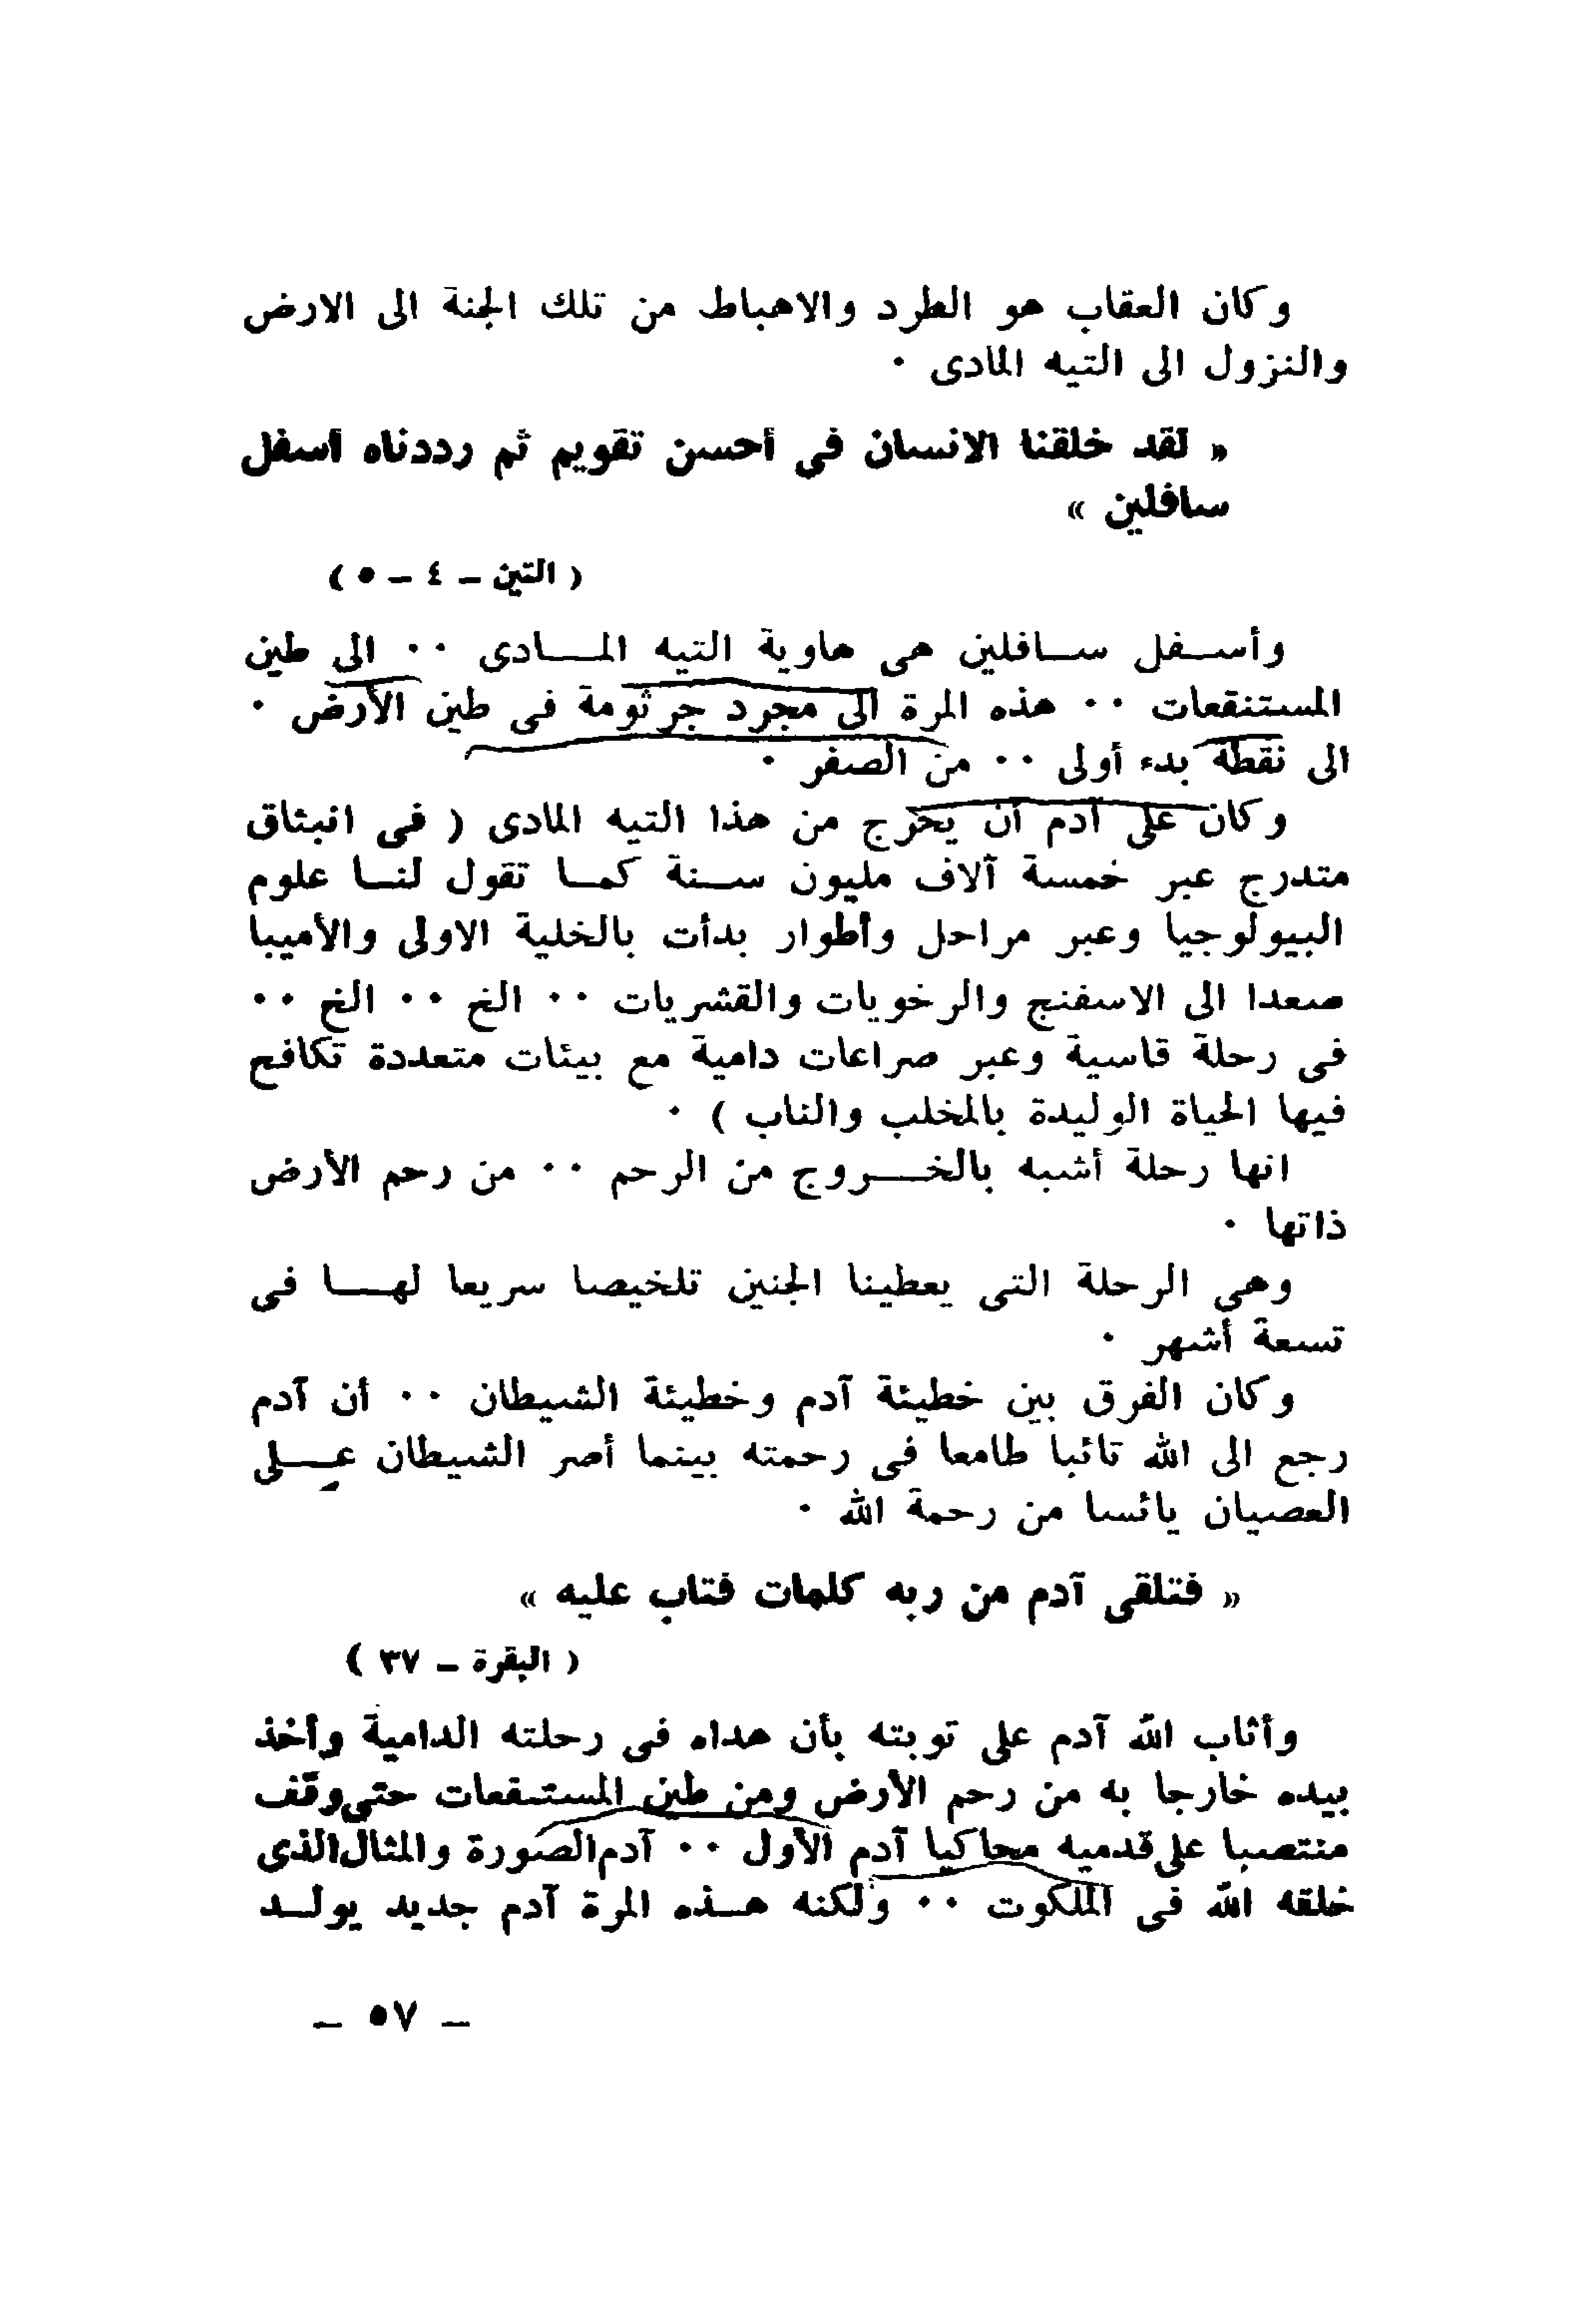 وكان العقاب هو الطرد والاهباط من تلك الجنة الى الارض
والنزول الى التيه المادى ٠
« لقد خلقنا الانسان في أحسن تقويم ثم رددناه أسفل
سافلين »
( التين ــ ٤ ــ ٥ )
وأســفل ســافلين هى هاوية التيه المـــادى ٠٠ الى طين
المستنقعات ٠٠ هذه المرة الى مجرد جرثومة فى طين الأرض ٠
الى نقطة بدء أولى ٠٠ من الصفر ٠
وكان على آدم أن يخرج من هذا التيه المادى ( فى انبثاق
متدرج عبر خمسة آلاف مليون ســنة كمــا تقول لنــا علوم
البيولوجيا وعبر مراحل وأطوار بدأت بالخلية الاولى والأميبا
صعدا الى الاسفنج والرخويات والقشريات ٠٠ الخ ٠٠ الخ ٠٠
فى رحلة قاسية وعبر صراعات دامية مع بيئات متعددة تكافح
فيها الحياة الوليدة بالمخلب والناب ) ٠
انها رحلة أشبه بالخـــروج من الرحم ٠٠ من رحم الأرض
ذاتها ٠
وهى الرحلة التى يعطينا الجنين تلخيصا سريعا لهـــا فى
تسعة أشهر ٠
وكان الفرق بين خطيئة آدم وخطيئة الشيطان ٠٠ أن آدم
رجع الى الله تائبا طامعا فى رحمته بينما أصر الشيطان عـــلى
العصيان يائسا من رحمة الله ٠
« فتلقى آدم من ربه كلمات فتاب عليه »
( البقرة ــ ٣٧ )
وأثاب الله آدم على توبته بأن هداه فى رحلته الدامية وأخذ
بيده خارجا به من رحم الأرض ومن طين المستنقعات حتى وقف
منتصبا على قدميه محاكيا آدم الأول ٠٠ آدم الصورة والمثال الذى
خلقه الله فى الملكوت ٠٠ ولكنه هــذه المرة آدم جديد يولــد
ــ ٥٧ ــ